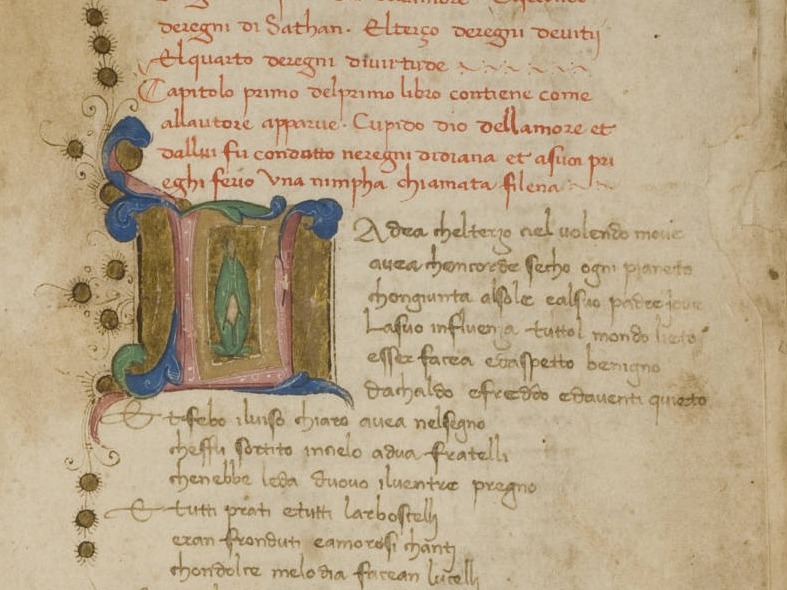 deregni di Sathan. Elterço deregni deuitij
Elquarto deregni diuirtude
Capitolo primo delprimo libro contiene come
allautore apparue. Cupido dio dellamore et
dallui fu condotto neregni didiana et asuoi pri
eghi ferio Vna nimpha chiamata filena
L Adea chelterzo ciel uolendo moue
auea choncorde secho ogni pianeta
chongiunta alsole ealsuo padre joue
Lasuo influenza tuttol mondo lieto
esser facea edaspetto benigno
dachaldo efreddo edauenti quieto
Et febo iluiso chiaro auea nelsegno
cheffu sortito incielo adua fratelli
chenebbe leda duouo iluentre pregno
E tutti prati etutti larboscellj
eran fronduti eamorosi chantj
chondolce melodia facean lucellj